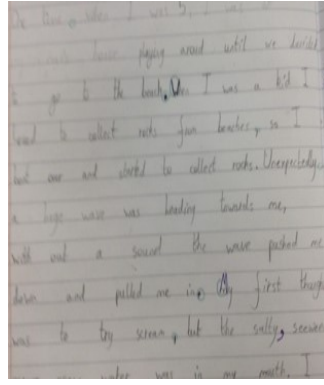 One time, when I was 5, I was at
house playing around until we decided
to go to the beach. When I was a kid I
loved to collect rocks from beaches, so I
and started to collect rocks. Unexpectedly,
a huge wave was heading towards me,
with out a sound the wave pushed me
down and pulled me in. My first though
was to try scream, but the salty, seawe
water was in my mouth. I